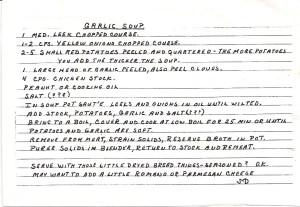 GARLIC SOUP
1 MED. LEEK CHOPPED COURSE.
1-2 CPS. YELLOW ONIONS CHOPPED COURSE.
2-5 SMALL RED POTATOES PEELED AND QUARTERED - THE MORE POTATOES
YOU ADD THE THICKER THE SOUP.
1 LARGE HEAD OF GARLIC PEELED, ALSO PEEL CLOVES.
4 CPS. CHICKEN STOCK.
PEANUT OR COOKING OIL
SALT (???)
IN SOUP POT SAUT'E LEEKS AND ONIONS IN OIL UNTIL WILTED.
ADD STOCK, POTATOES, GARLIC AND SALT(???)
BRING TO A BOIL, COVER AND COOK AT LOW BOIL FOR 25 MIN OR UNTIL
POTATOES AND GARLIC ARE SOFT.
REMOVE FROM HEAT, STRAIN SOLIDS, RESERVE BROTH IN POT.
PUREE SOLIDS IN BLENDER, RETURN TO STOCK AND REHEAT.
SERVE WITH THOSE LITTLE DRYED BREAD THINGS - SEASONED? O.K.
MAY WANT TO ADD A LITTLE ROMANO OR PARMESAN CHEESE